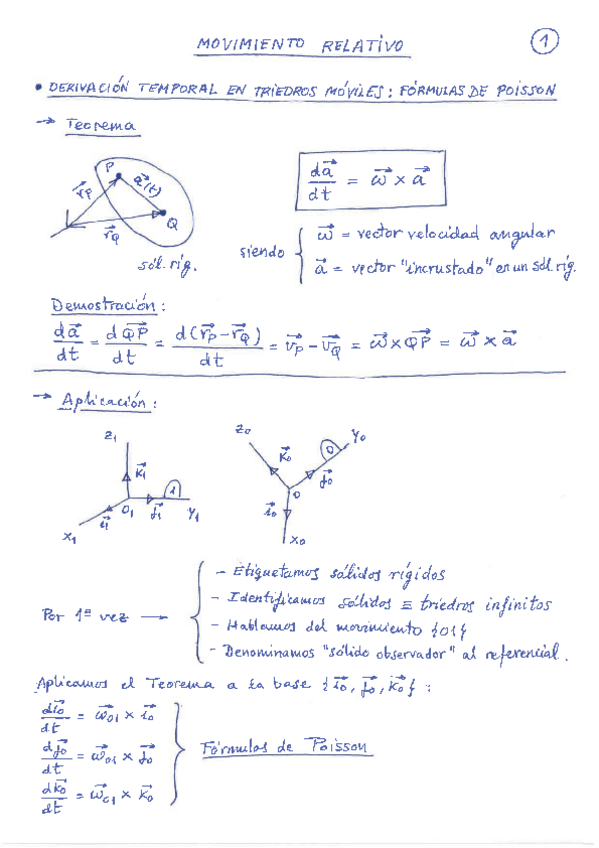 MOVIMIENTO RELATIVO
1
• DERIVACIÓN TEMPORAL EN TRIEDROS MÓVILES: FÓRMULAS DE POISSON
→ Teorema
P
r⃗P
a⃗(t)
Q
r⃗Q
sól. ríg.
da⃗/dt = ω⃗ × a⃗
siendo { ω⃗ = vector velocidad angular
a⃗ = vector "incrustado" en un sól. ríg.
Demostración:
da⃗/dt = dQP⃗/dt = d(r⃗P − r⃗Q)/dt = v⃗P − v⃗Q = ω⃗ × QP⃗ = ω⃗ × a⃗
→ Aplicación:
Z1
k⃗1
1
O1
j⃗1
Y1
i⃗1
X1
Z0
Y0
0
k⃗0
j⃗0
O
i⃗0
X0
Por 1ª vez → { - Etiquetamos sólidos rígidos
- Identificamos sólidos ≡ triedros infinitos
- Hablamos del movimiento {01}
- Denominamos "sólido observador" al referencial.
Aplicamos el Teorema a la base {i⃗0, j⃗0, k⃗0}:
di⃗0/dt = ω⃗01 × i⃗0
dj⃗0/dt = ω⃗01 × j⃗0 } Fórmulas de Poisson
dk⃗0/dt = ω⃗01 × k⃗0